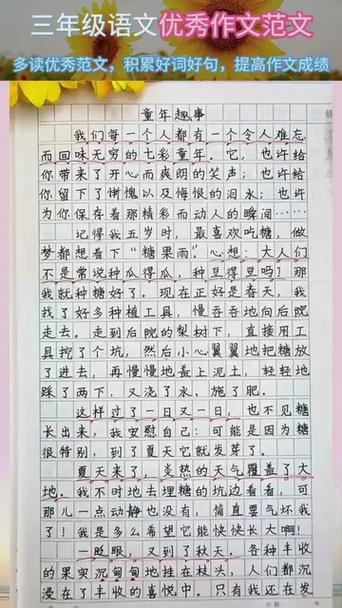 三年级语文优秀作文范文
多读优秀范文，积累好词好句，提高作文成绩
童年趣事
我们每一个人都有一个令人难忘
而回味无穷的七彩童年。它，也许给
你带来了开心而爽朗的笑声；也许给
你留下了惭愧以及悔恨的泪水；也许
为你保存着那精彩而动人的瞬间……
记得我五岁时，最喜欢吃糖，做
梦都想看下“糖果雨”。心想：大人们
不是常说种瓜得瓜，种豆得豆吗？那
我就种糖好了。现在正好是春天，我
找了好多种植工具，慢吞吞地向后院
走去。走到后院的梨树下，直接用工
具挖了个坑，然后小心翼翼地把糖放
了进去，再慢慢地盖上泥土，轻轻地
踩了两下，又浇了水、施了肥。
这样过了一日又一日，也不见糖
长出来，我安慰自己：可能是因为糖
很特别，到了夏天它就发芽了。
夏天来了，炎热的天气覆盖了大
地。我不时地去埋糖的坑边看看，可
那儿一点动静也没有，简直要气坏我
了！我是多么希望它能快快长大啊！
一眨眼，又到了秋天，各种丰收
的果实沉甸甸地挂在枝头，人们都沉
浸在了丰收的喜悦中。只有我还在发